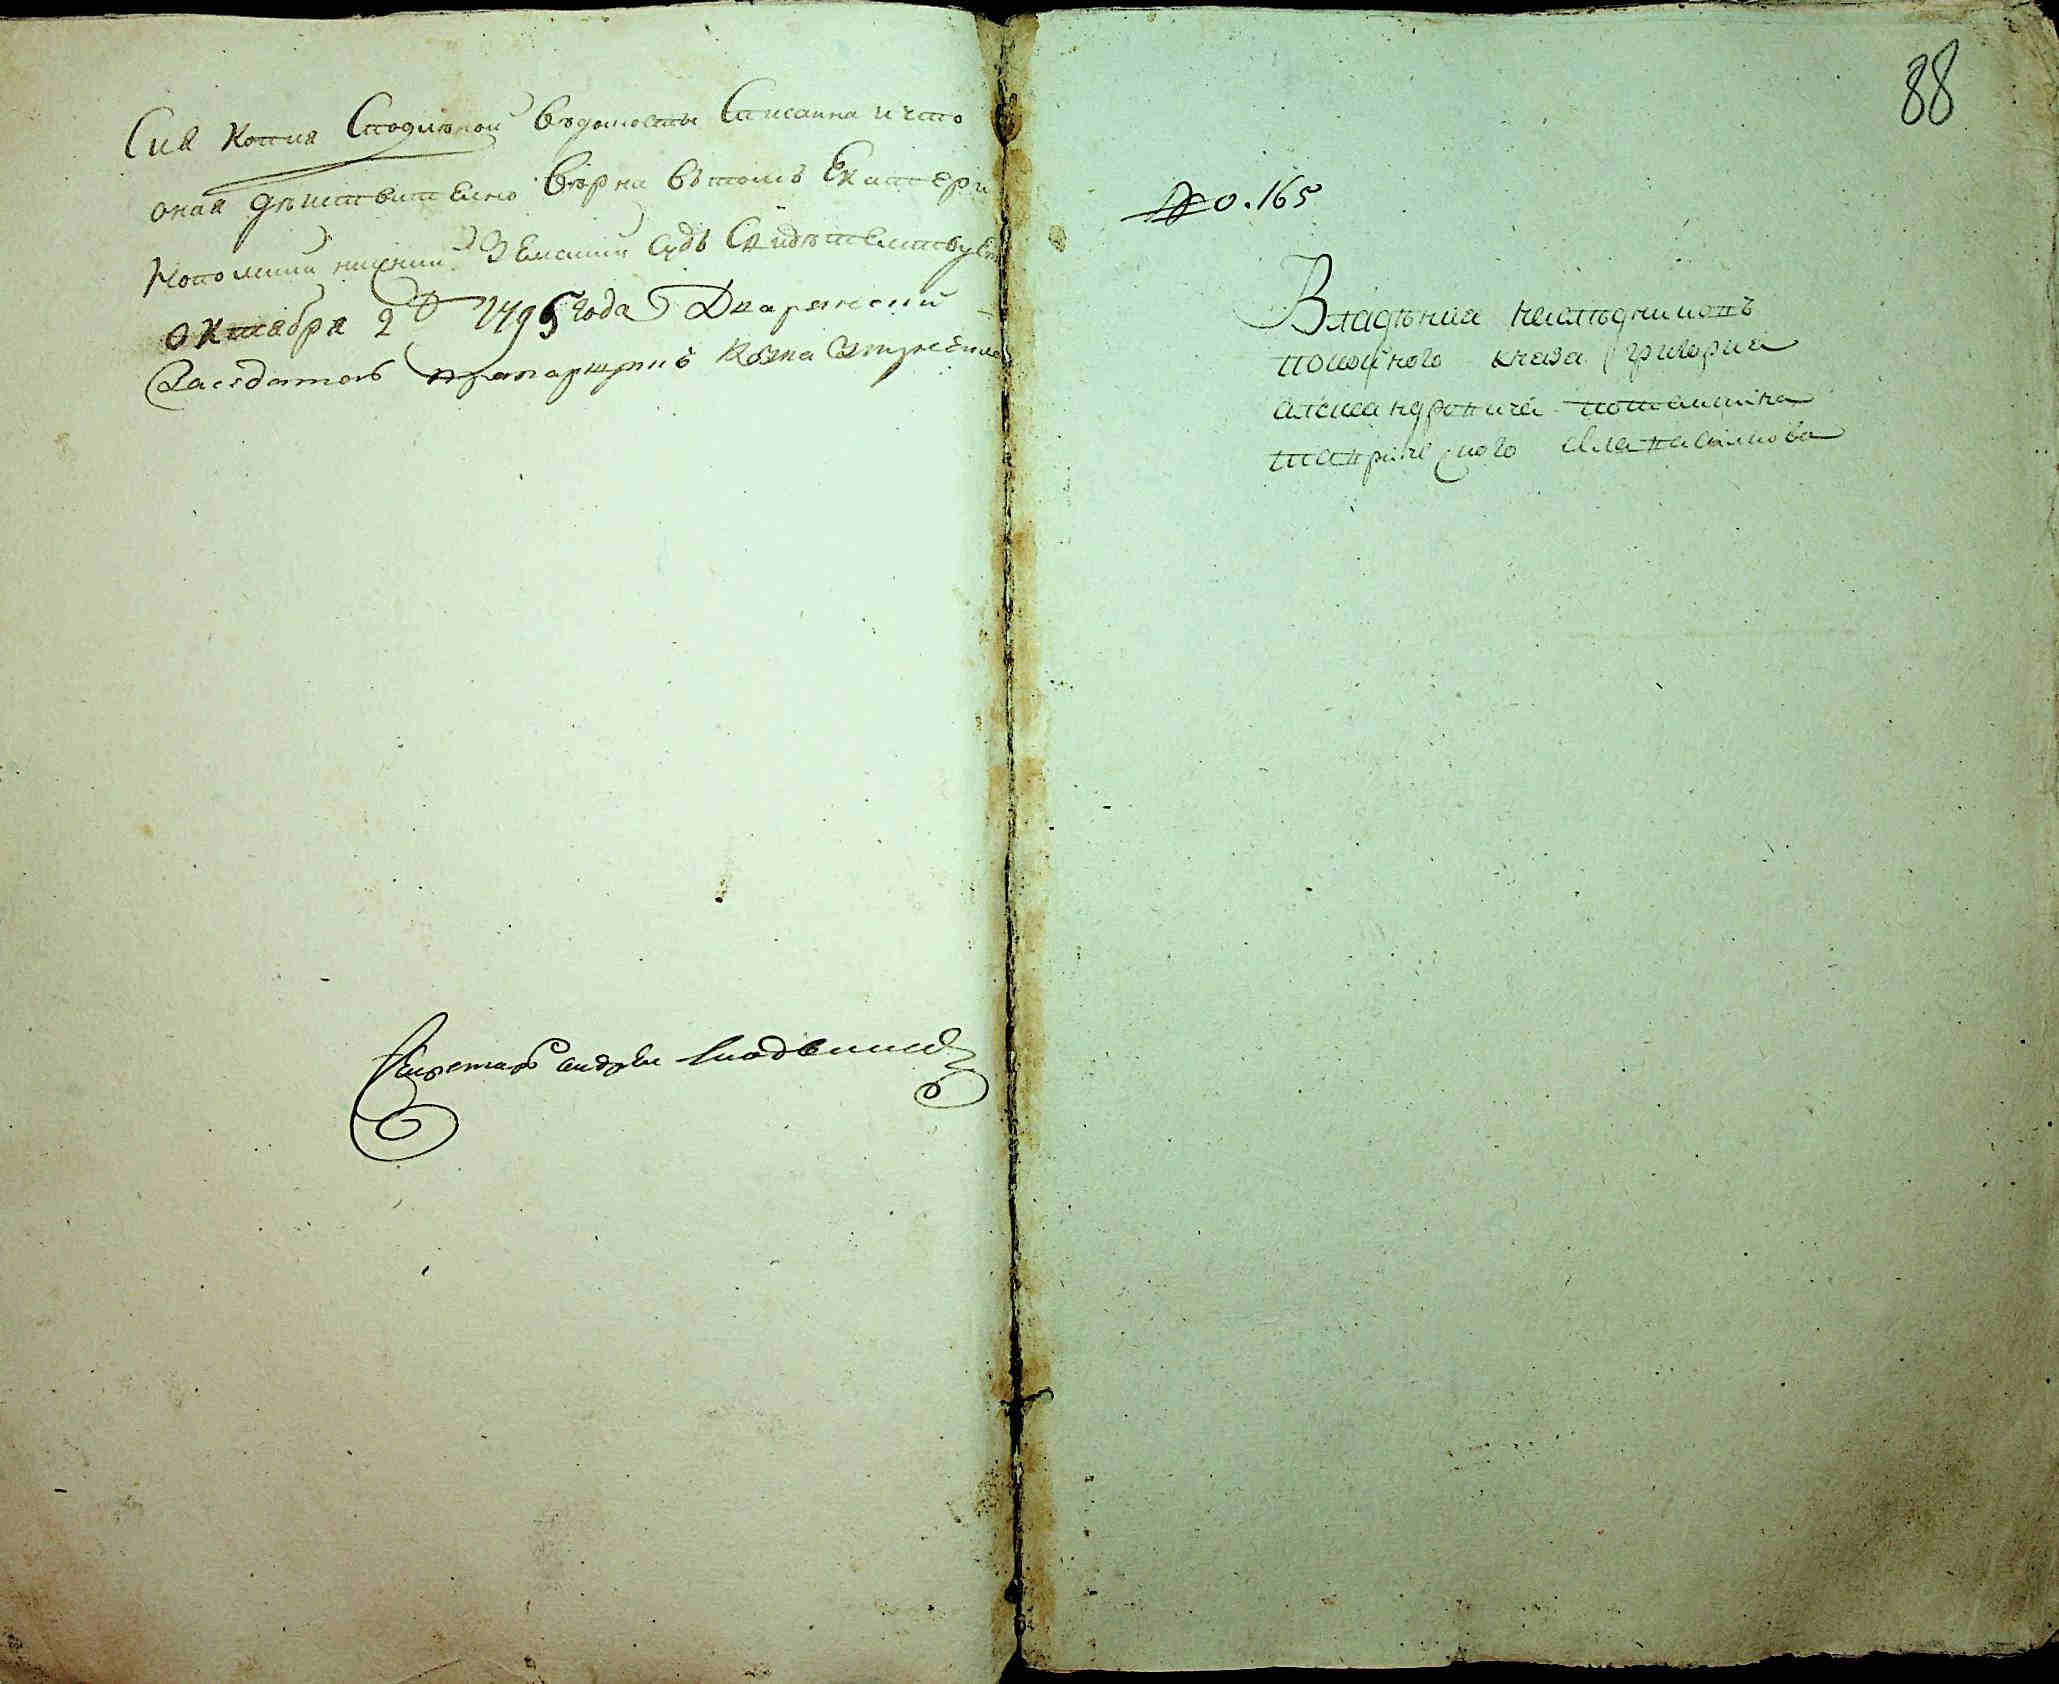 Сия копия Сподленой ведомосты Списанна и что
оная действително верна втомъ Екатери
нопольский нижний Земский судъ Свидетелствует
октября 2д 1795 года Дваренский
Заседатель прапорщикъ Козма
Секретарь андрей
88
№ 165
Владения наследниковъ
покойного князя григория
александровича потемкина
таврического